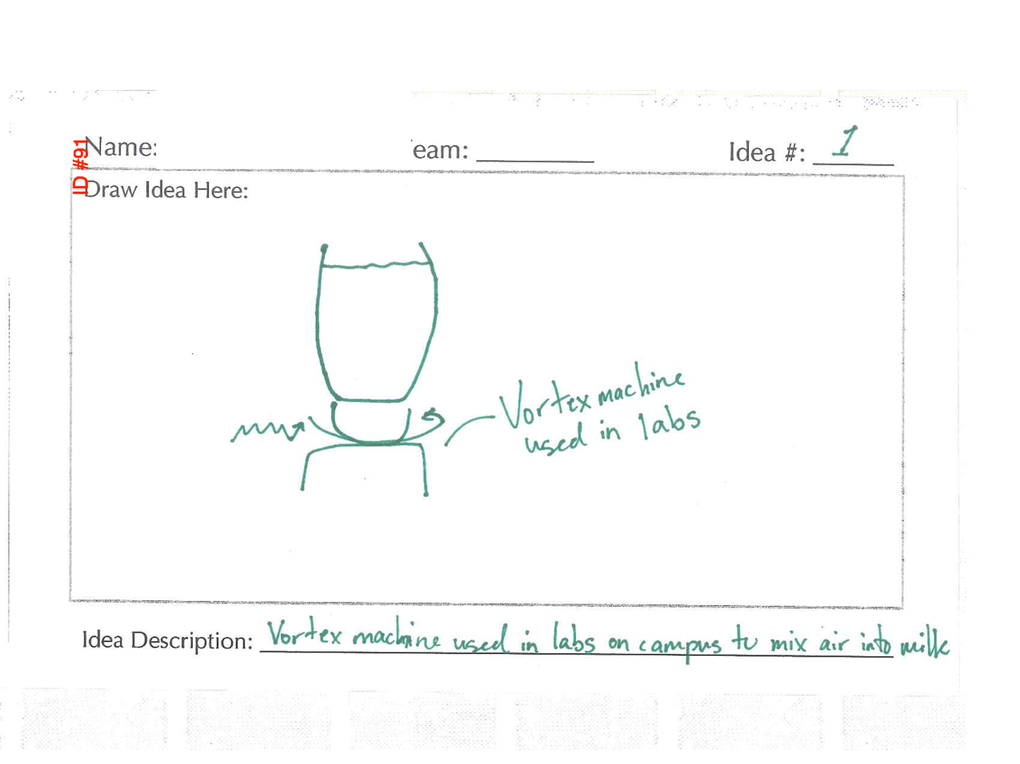 ID #91
Name: eam: Idea #: 1
Draw Idea Here:
Vortex machine
used in labs
Idea Description: Vortex machine used in labs on campus to mix air into milk